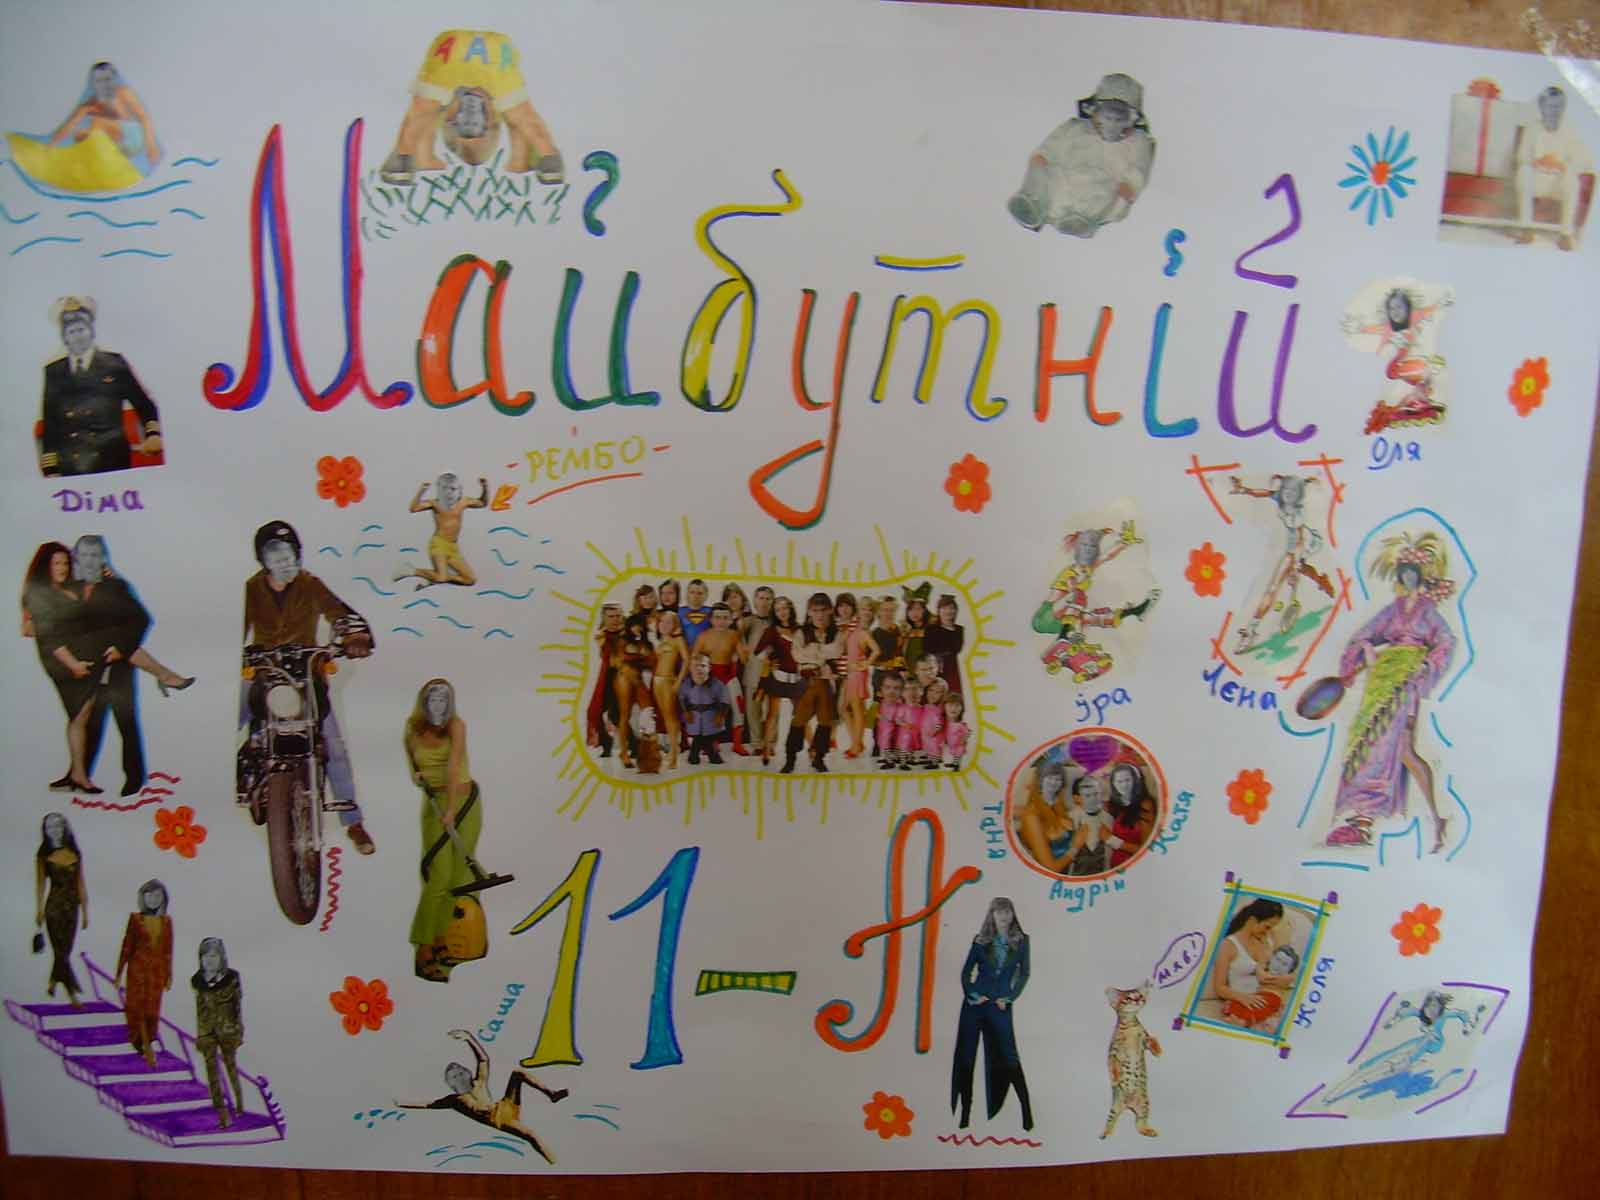 ААА
Майбутній
Оля
Діма
-РЕМБО-
Лєна
Іра
Таня
Катя
Андрій
Мяв!
Коля
Саша
11-А